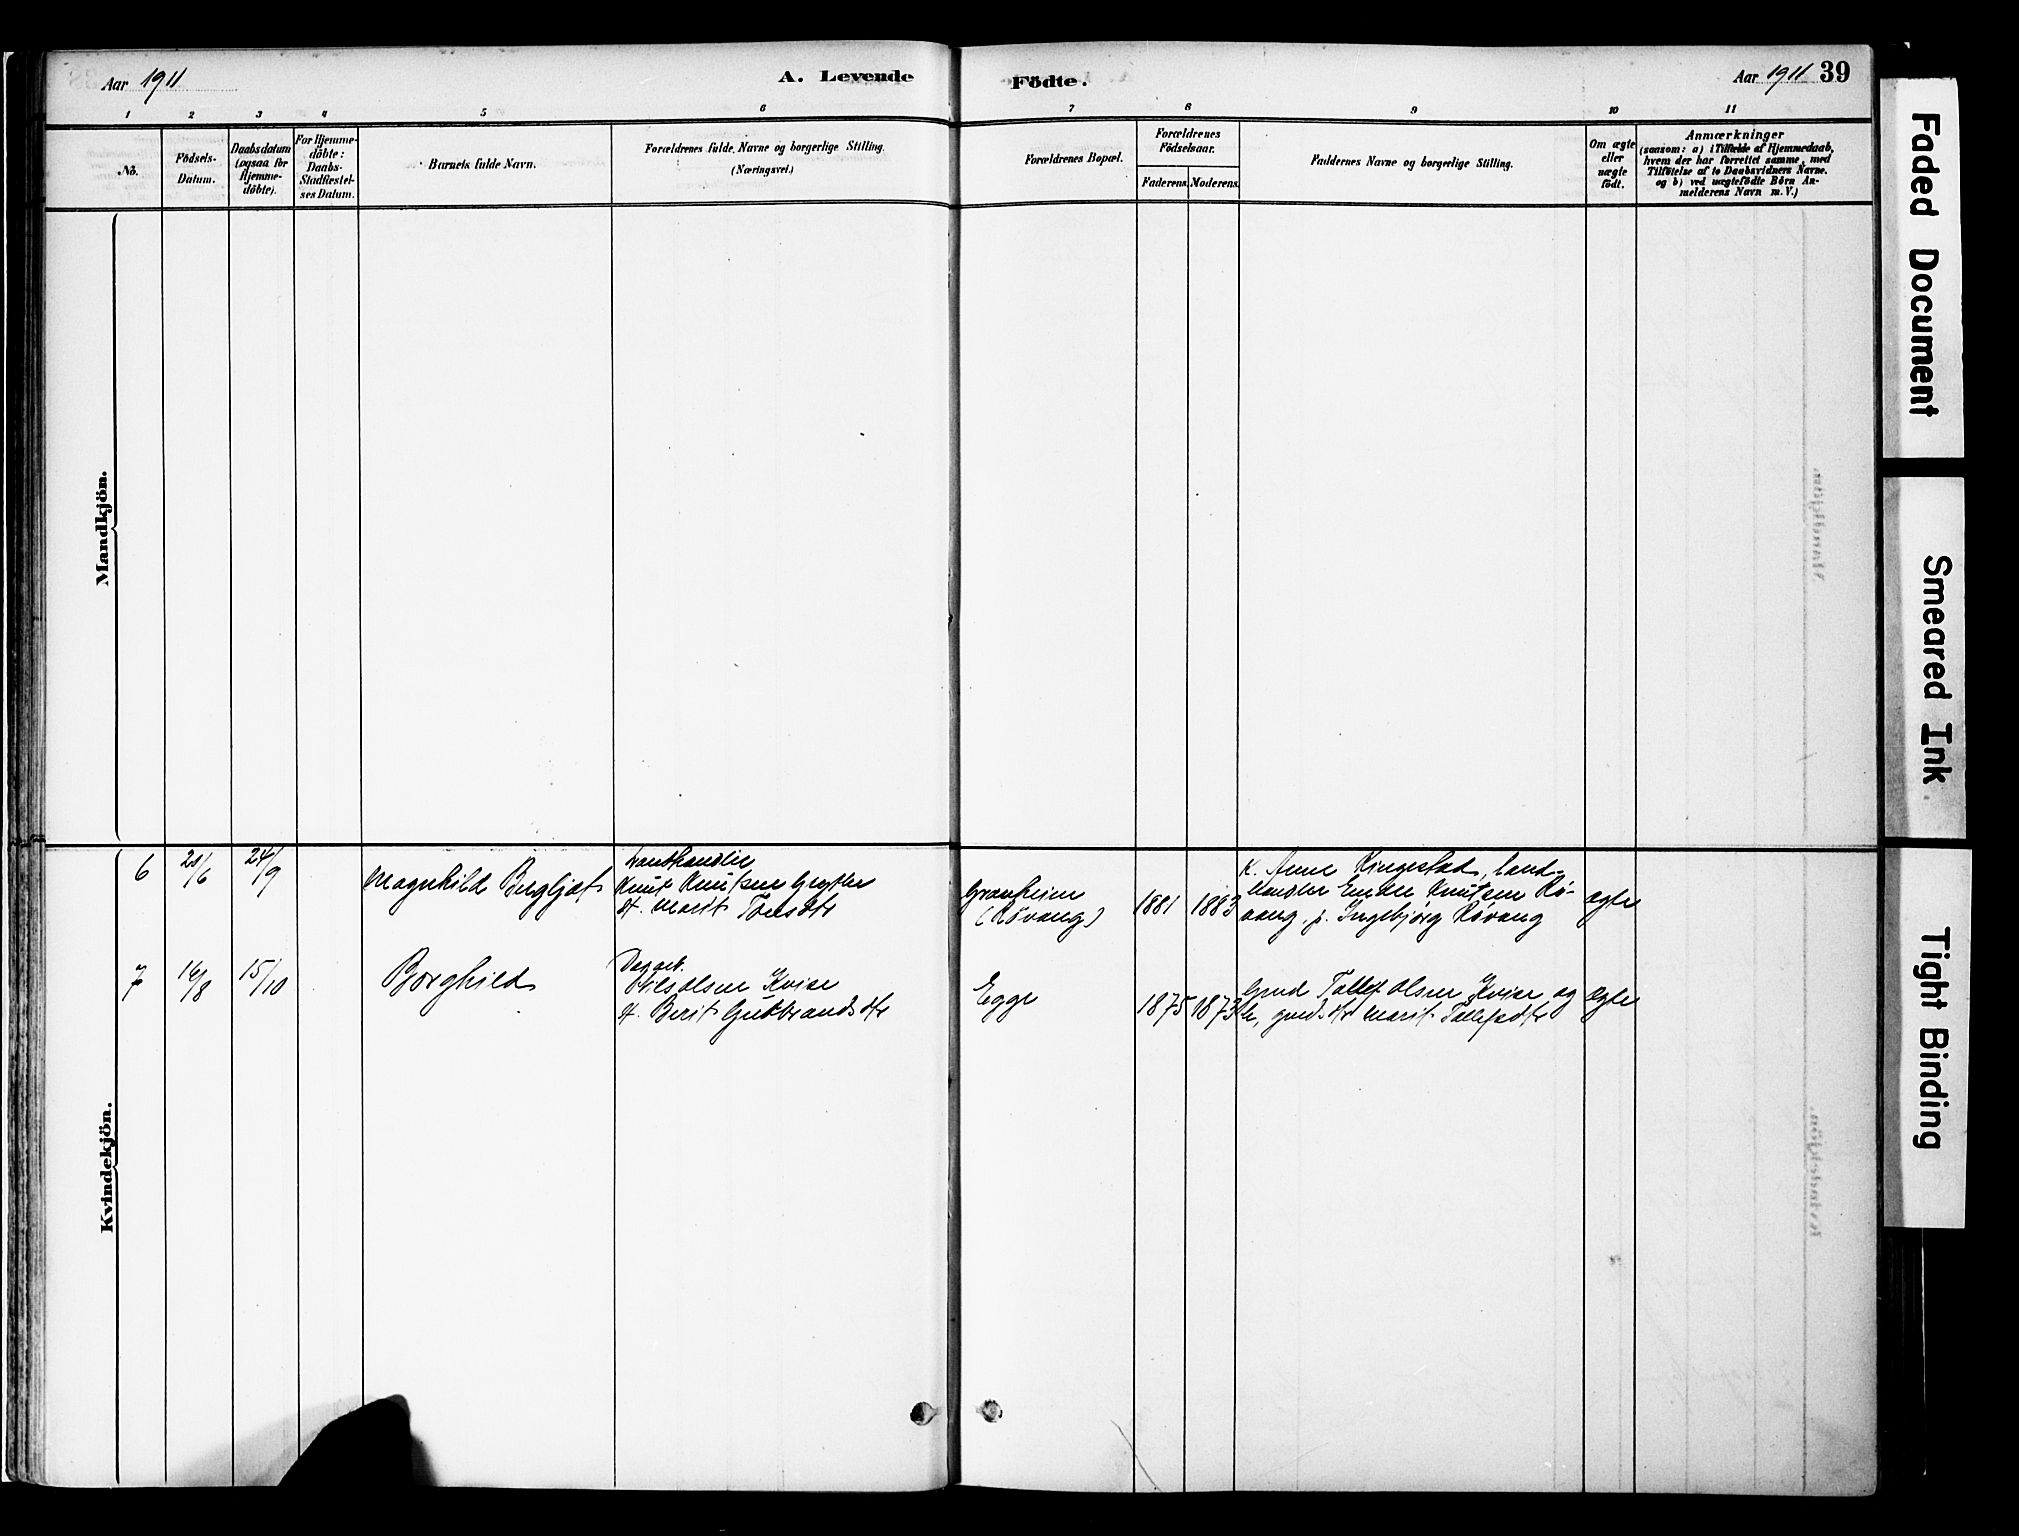 Aar 1911
A. Levende
Födte.
Aar 1911 39
1 2 3 4 5 6 7 8 9 10 11
No.
Födsels-
Datum.
Daabsdatum
(ogsaa for
Hjemme-
döbte).
For Hjemme-
döbte:
Daabs-
Stadfæstel-
ses Datum.
Barnets fulde Navn.
Forældrenes fulde Navne og borgerlige Stilling.
(Næringsvei.)
Forældrenes Bopæl.
Forældrenes
Födselsaar.
Faderens.
Moderens.
Faddernes Navne og borgerlige Stilling.
Om ægte
eller
uægte
födt.
Anmærkninger
(saasom: a) i Tilfælde af Hjemmedaab,
hvem der har forrettet samme, med
Tilföielse af to Daabsvidners Navne.
og b) ved uægtefödte Börn An-
melderens Navn m. V.)
Mandkjön.
Kvindekjön.
6
24/9
Magnhild Bergljot
Landhandler
Knut Knutsen
H. Marit
Granheim
(Røvang)
1881
1883
K. Anne Ringestad, land-
handler Knutsen Rø-
vang, p. Ingebjørg Røvang
ægte
7
16/8
15/10
Borghild
Dagarb.
Nils Olsen Kvien
H. Berit Gudbrandsdtr
Egge
1875
1873
Gmd Tollef Olsen og
h, gmdsdtr Marit Tollefsdtr
ægte
Faded Document
Smeared Ink
Tight Binding